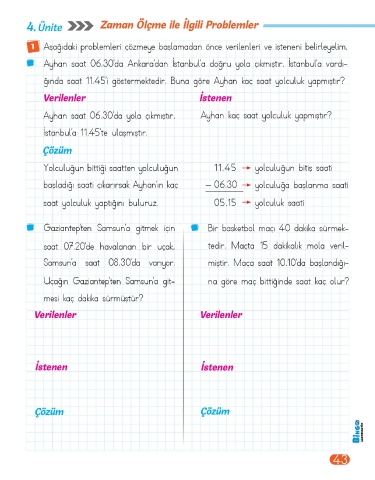 4. Ünite
Zaman Ölçme ile İlgili Problemler
1 Aşağıdaki problemleri çözmeye başlamadan önce verilenleri ve isteneni belirleyelim.
Ayhan saat 06.30'da Ankara'dan İstanbul'a doğru yola çıkmıştır. İstanbul'a vardı-
ğında saat 11.45'i göstermektedir. Buna göre Ayhan kaç saat yolculuk yapmıştır?
Verilenler
Ayhan saat 06.30'da yola çıkmıştır.
İstanbul'a 11.45'te ulaşmıştır.
İstenen
Ayhan kaç saat yolculuk yapmıştır?
Çözüm
Yolculuğun bittiği saatten yolculuğun
başladığı saati çıkarırsak Ayhan'ın kaç
saat yolculuk yaptığını buluruz.
11.45 → yolculuğun bitiş saati
– 06.30 → yolculuğa başlanma saati
05.15 → yolculuk saati
Gaziantep'ten Samsun'a gitmek için
saat 07.20'de havalanan bir uçak,
Samsun'a saat 08.30'da varıyor.
Uçağın Gaziantep'ten Samsun'a git-
mesi kaç dakika sürmüştür?
Verilenler
İstenen
Çözüm
Bir basketbol maçı 40 dakika sürmek-
tedir. Maçta 15 dakikalık mola veril-
miştir. Maça saat 10.10'da başlandığı-
na göre maç bittiğinde saat kaç olur?
Verilenler
İstenen
Çözüm
43